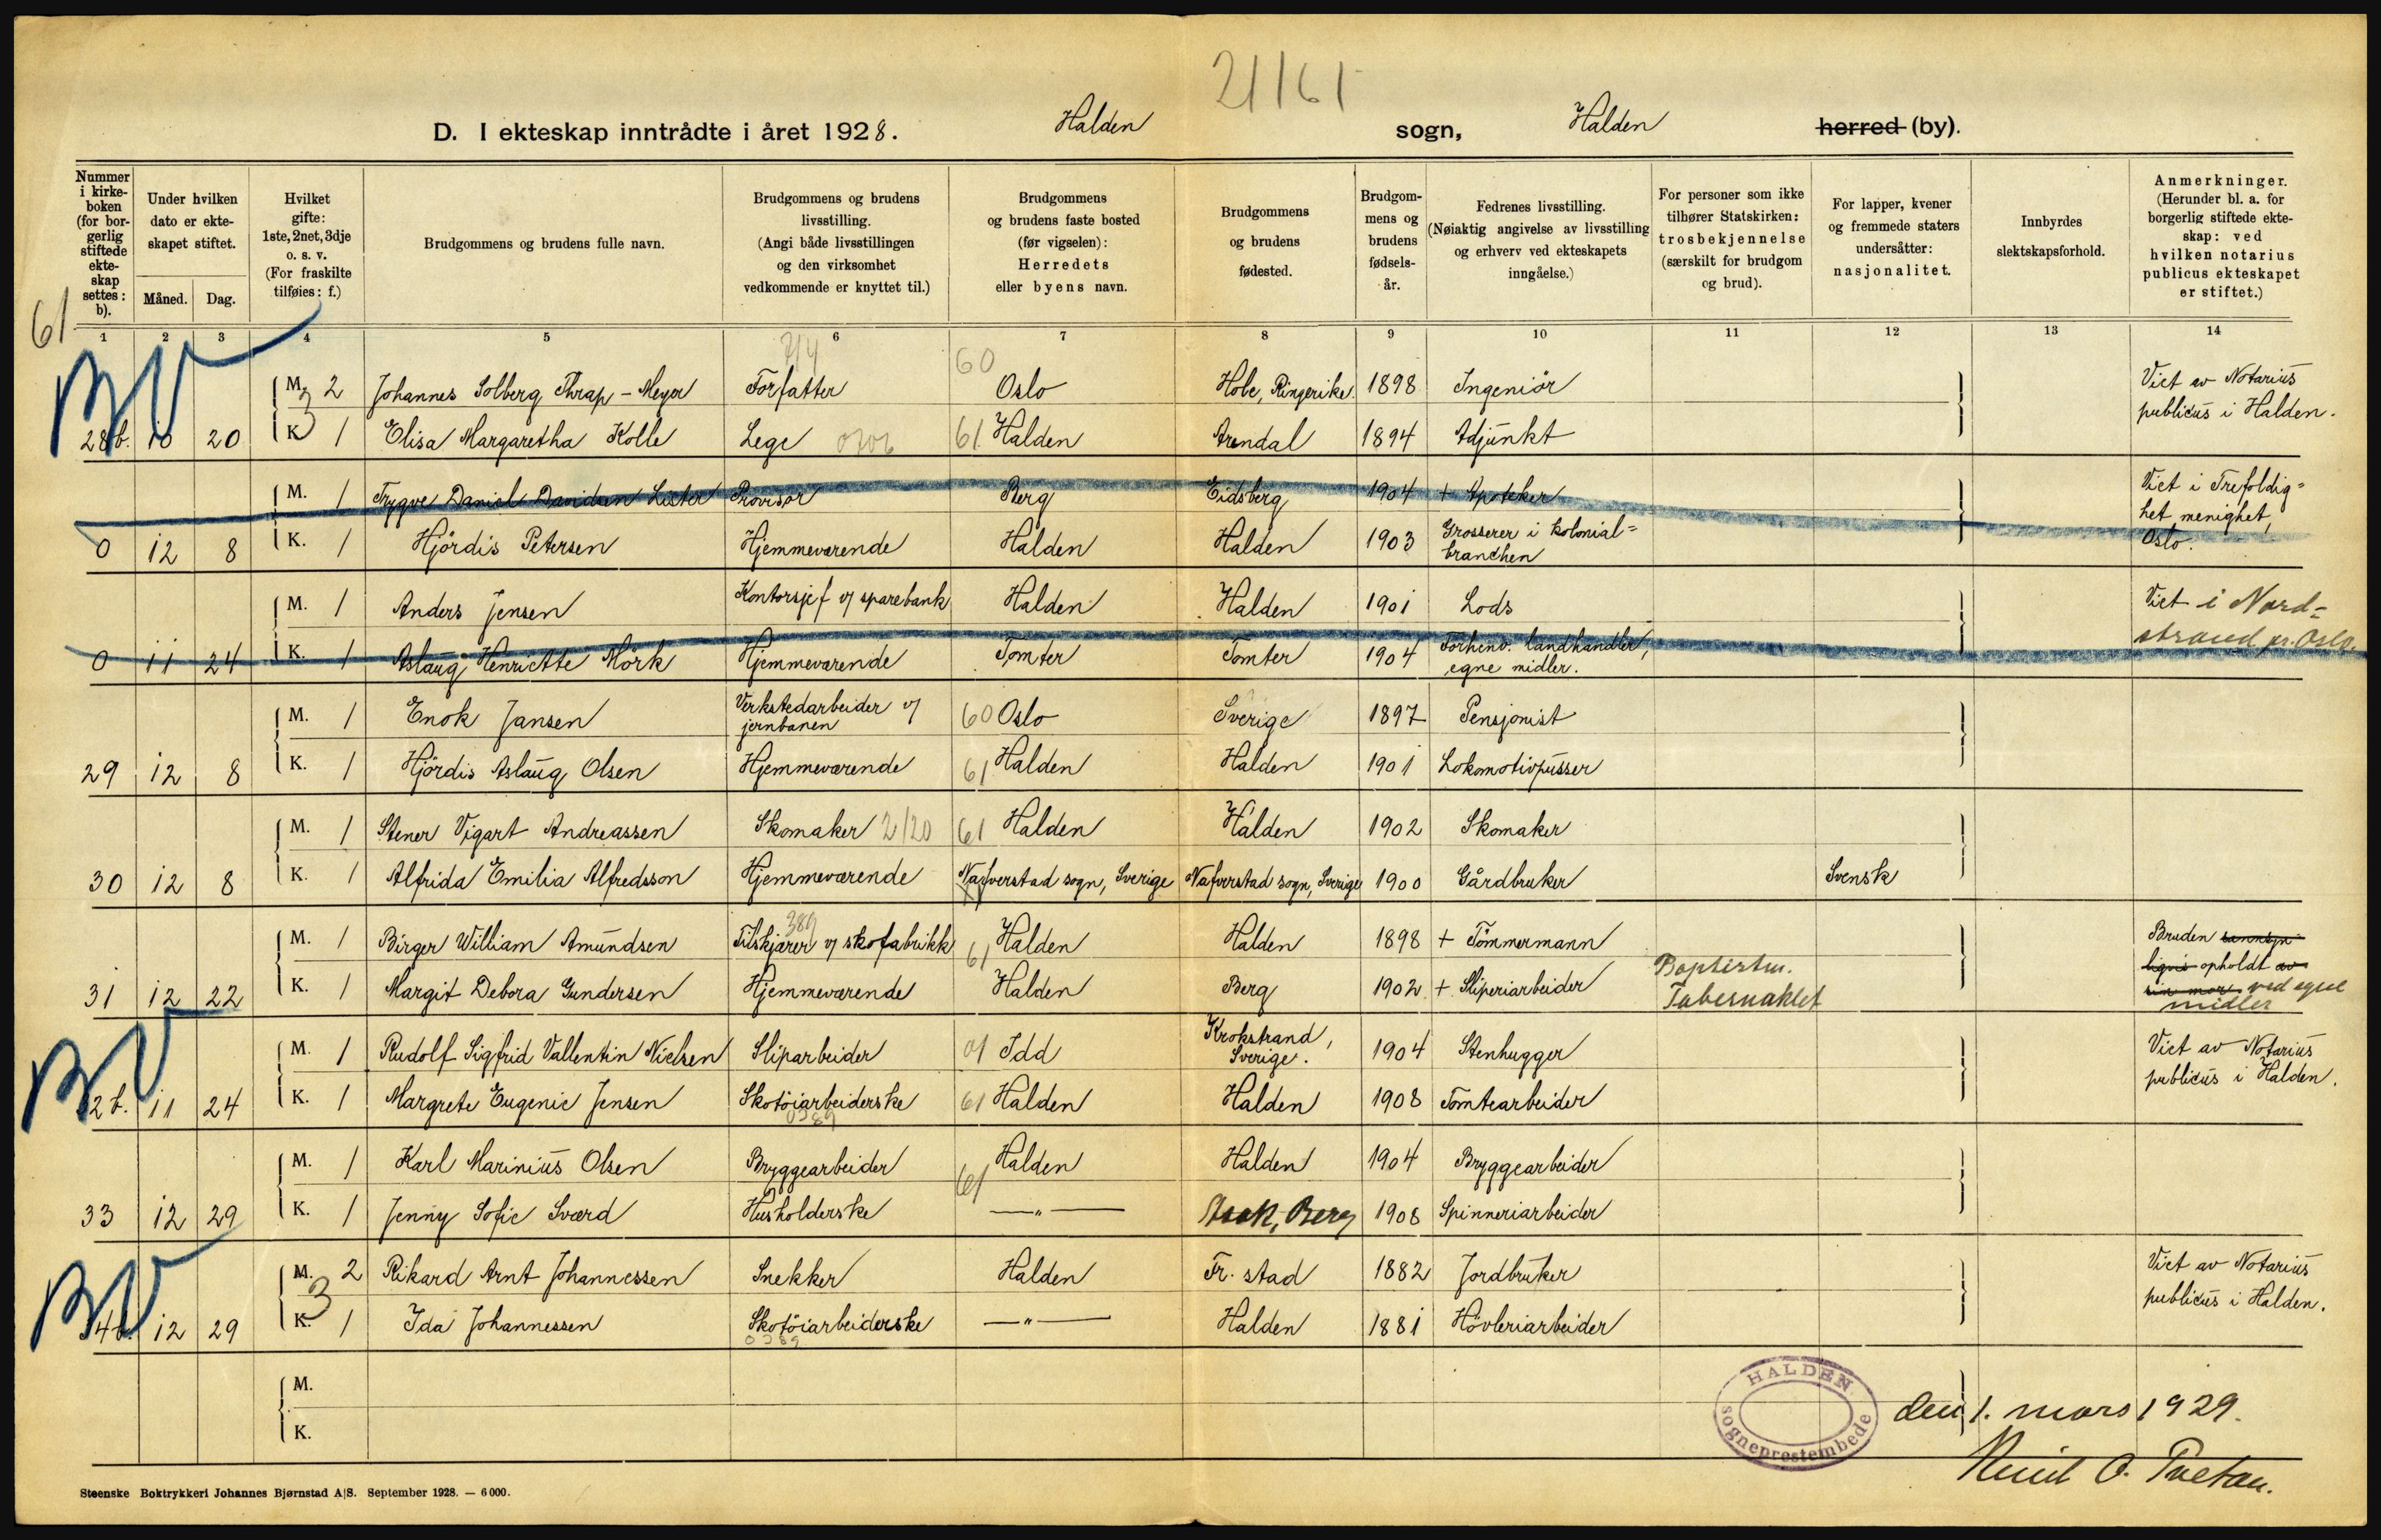 21161
D. I ekteskap inntrådte i året 1928. Halden sogn, Halden herred (by).
Nummer i kirke-boken (for bor-gerlig stiftede ekte-skap settes: b).
Under hvilken dato er ekte-skapet stiftet.
Måned. Dag.
Hvilket gifte: 1ste, 2net, 3dje o. s. v. (For fraskilte tilføies: f.)
Brudgommens og brudens fulle navn.
Brudgommens og brudens livsstilling. (Angi både livsstillingen og den virksomhet vedkommende er knyttet til.)
Brudgommens og brudens faste bosted (før vigselen): Herredets eller byens navn.
Brudgommens og brudens fødested.
Brudgom-mens og brudens fødsels-år.
Fedrenes livsstilling. (Nøiaktig angivelse av livsstilling og erhverv ved ekteskapets inngåelse.)
For personer som ikke tilhører Statskirken: trosbekjennelse (særskilt for brudgom og brud).
For lapper, kvener og fremmede staters undersåtter: nasjonalitet.
Innbyrdes slektskapsforhold.
Anmerkninger. (Herunder bl. a. for borgerlig stiftede ekte-skap: ved hvilken notarius publicus ekteskapet er stiftet.)
61
1 2 3 4 5 6 7 8 9 10 11 12 13 14
BV
M. 2 Johannes Solberg Thrap-Meyer Forfatter 214 60 Oslo Hole, Ringerike. 1898 Ingeniör Viet av Notarius
28b. 10 20 3 K. 1 Elisa Margaretha Kolle Lege 0206 61 Halden Arendal 1894 Adjunkt publicus i Halden.
M. 1 Trygve Daniel Davidsen Lister Provisor Berg Eidsberg 1904 + Apoteker Viet i Trefoldig=
0 12 8 K. 1 Hjördis Petersen Hjemmeværende Halden Halden 1903 Grosserer i kolonial= branchen het menighet, Oslo.
M. 1 Anders Jensen Kontorsjef v/ sparebank Halden Halden 1901 Lods Viet i Nord=
0 11 24 K. 1 Aslaug Henriette Mörk Hjemmeværende Tomter Tomter 1904 Forhenv. landhandler, egne midler. strand pr. Oslo.
M. 1 Enok Jansen Verkstedarbeider v/ jernbanen 60 Oslo Sverige 1897 Pensjonist
29 12 8 K. 1 Hjördis Aslaug Olsen Hjemmeværende 61 Halden Halden 1901 Lokomotivpusser
M. 1 Stener Vigart Andreassen Skomaker 2/20 61 Halden Halden 1902 Skomaker
30 12 8 K. 1 Alfrida Emilia Alfredsson Hjemmeværende Nafverstad sogn, Sverige Nafverstad sogn, Sverige 1900 Gårdbruker Svensk
M. 1 Birger William Amundsen Tilskjærer v/ skofabrikk 389 61 Halden Halden 1898 + Tömmermann Bruden sannsyn
31 12 22 K. 1 Margit Debora Gundersen Hjemmeværende Halden Berg 1902 + Sliperiarbeider Baptistm. Tabernaklet ligvis opholdt av sin mor ved egne midler
BV
M. 1 Rudolf Sigfrid Vallentin Nielsen Sliparbeider 01 Idd Krokstrand, Sverige. 1904 Stenhugger Viet av Notarius
32b. 11 24 K. 1 Margrete Eugenie Jensen Skotöiarbeiderske 0389 61 Halden Halden 1908 Tomtearbeider publicus i Halden.
M. 1 Karl Marinius Olsen Bryggearbeider 61 Halden Halden 1904 Bryggearbeider
33 12 29 K. 1 Jenny Sofie Sværd Husholderske —"— Berg 1908 Spinneriarbeider
BV
M. 2 Rikard Arnt Johannessen Snekker Halden Fr. stad 1882 Jordbruker Viet av Notarius
34b. 12 29 3 K. 1 Ida Johannessen Skotöiarbeiderske 0389 —"— Halden 1881 Hövleriarbeider publicus i Halden.
M.
K.
HALDEN sogneprestembede
den 1. mars 1929.
Steenske Boktrykkeri Johannes Bjørnstad A|S. September 1928. — 6000.